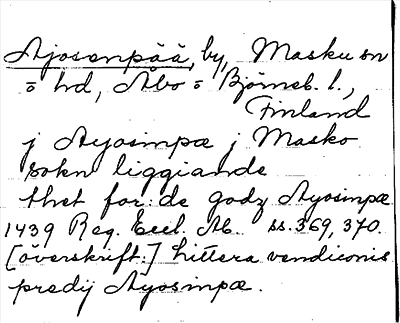 Ajosenpää, by, Masku sn
o hd, Åbo o Björneb. l.,
Finland
j Ayosimpæ j Masko
sokn liggiande
thet for: de godz Ayosinpæ
1439 Reg. Eccl. Ab. ss. 369, 370.
[överskrift:] littera vendicionis
predij Ayosimpæ.